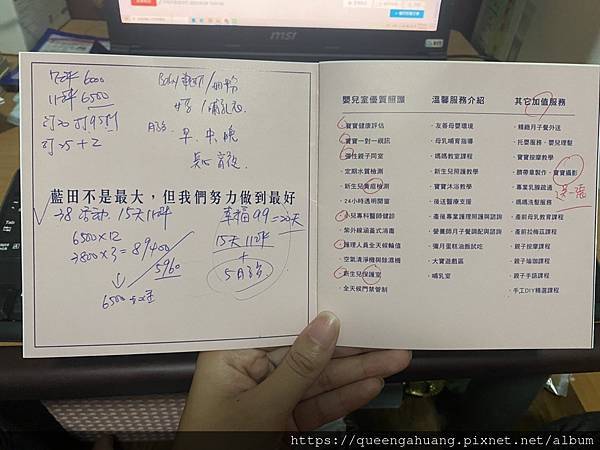 msi
7坪 6000
11坪 6500
訂20 打95折
訂25+2
早.中.晚
藍田不是最大，但我們努力做到最好
38活動 15天11坪
6500×12
3800×3 = 89400
5960
幸福99 = 20天
15天11坪
+
嬰兒室優質照護
寶寶健康評估
寶寶一對一視訊
彈性親子同室
定期水質檢測
新生兒黃疸檢測
24小時透明開窗
小兒專科醫師健診
紫外線涵蓋式消毒
護理人員全天候輪值
空氣清淨機與除濕機
新生兒保護室
全天候門禁管制
溫馨服務介紹
友善母嬰環境
母乳哺育指導
媽媽教室課程
新生兒照護教學
寶寶沐浴教學
後送醫療支援
產後專業護理照護與諮詢
營養師月子餐調配與諮詢
彌月蛋糕油飯試吃
大寶遊戲區
哺乳室
其它加值服務
精緻月子餐外送
托嬰服務、嬰兒理髮
寶寶按摩教學
臍帶章製作、寶寶攝影
送一張
專業乳腺疏通
媽媽洗髮服務
產前母乳教育課程
產前拉梅茲課程
親子按摩課程
親子瑜珈課程
親子手語課程
手工DIY精選課程
https://queengahuang.pixnet.net/album